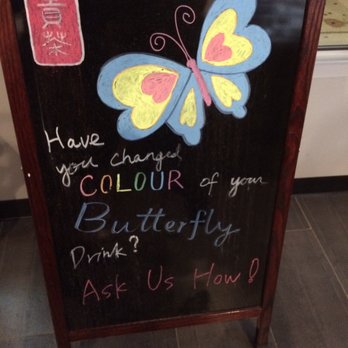 Have
you changed
COLOUR of your
Butterfly
Drink?
Ask Us How!